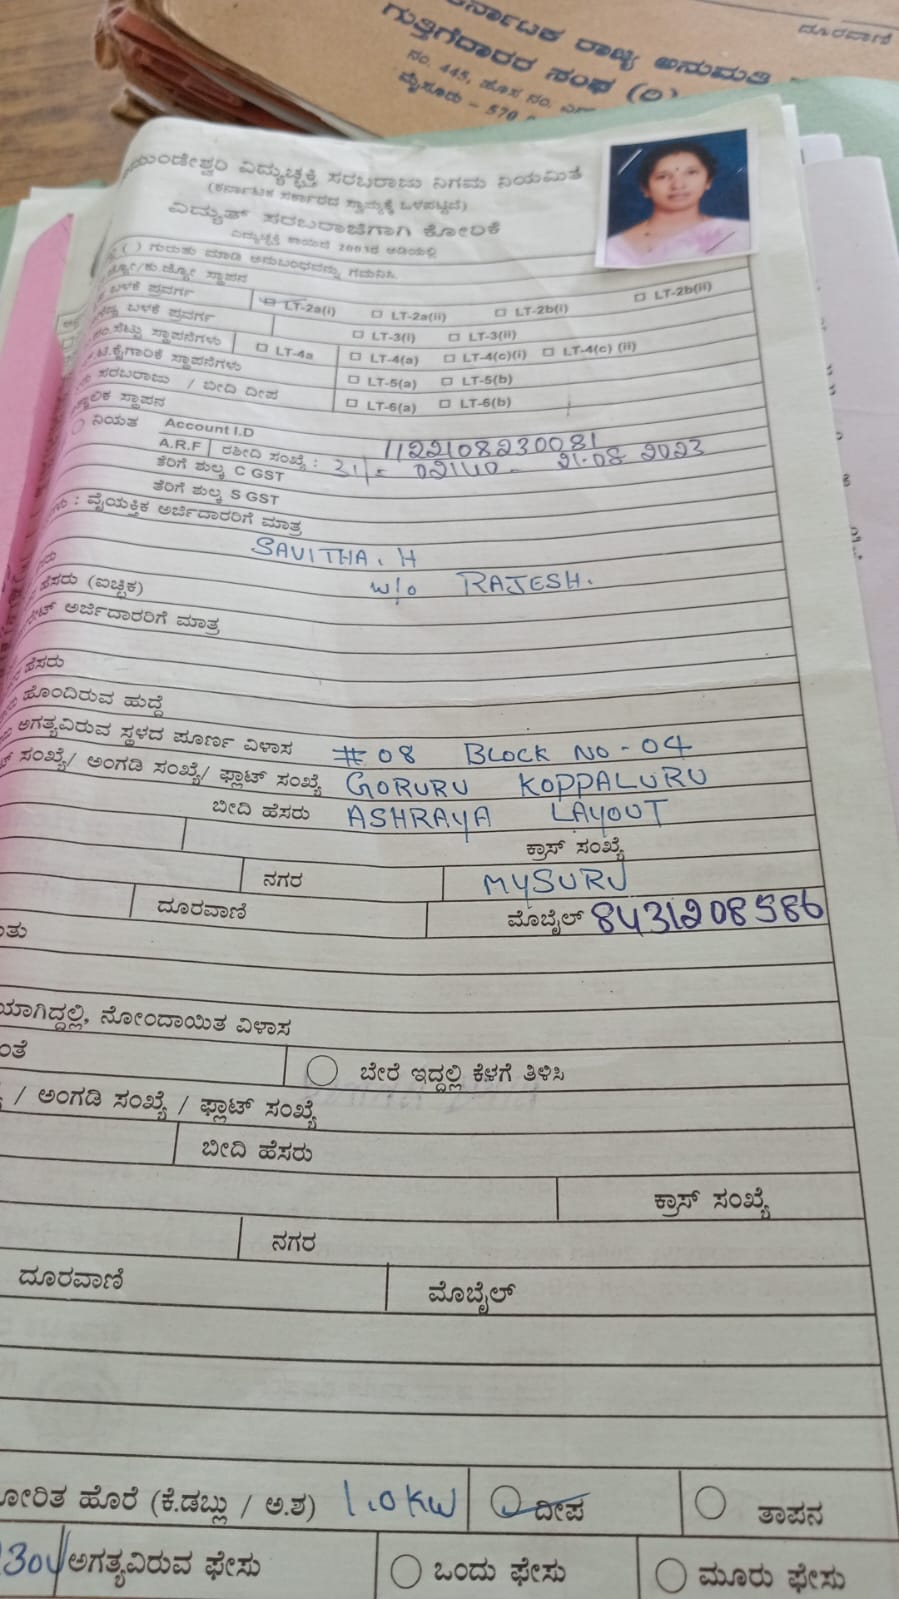 ರ್ನಾಟಕ ರಾಜ್ಯ ಅನುಮತಿ
ದೂರವಾಣಿ
ಗುತ್ತಿಗೆದಾರರ ಸಂಘ (ರಿ)
ನಂ. 445, ಹೊಸ ನಂ.
ಮೈಸೂರು - 570
ಮುಂಡೇಶ್ವರಿ ವಿದ್ಯುಚ್ಛಕ್ತಿ ಸರಬರಾಜು ನಿಗಮ ನಿಯಮಿತ
(ಕರ್ನಾಟಕ ಸರ್ಕಾರದ ಸ್ವಾಮ್ಯಕ್ಕೆ ಒಳಪಟ್ಟಿದೆ)
ವಿದ್ಯುತ್ ಸರಬರಾಜಿಗಾಗಿ ಕೋರಿಕೆ
ವಿದ್ಯುಚ್ಛಕ್ತಿ ಕಾಯಿದೆ 2003ರ ಅಡಿಯಲ್ಲಿ
( ) ಗುರುತು ಮಾಡಿ ಅನುಬಂಧವನ್ನು ಗಮನಿಸಿ.
ಸ್ಥಾಪನ
ಬಳಕೆ ಪ್ರವರ್ಗ LT-2a(i) LT-2a(ii) LT-2b(i) LT-2b(ii)
ಬಳಕೆ ಪ್ರವರ್ಗ LT-3(i) LT-3(ii)
ಸ್ಥಾಪನೆಗಳು LT-4a LT-4(a) LT-4(c)(i) LT-4(c) (ii)
ಕೈಗಾರಿಕೆ ಸ್ಥಾಪನೆಗಳು LT-5(a) LT-5(b)
ಸರಬರಾಜು / ಬೀದಿ ದೀಪ LT-6(a) LT-6(b)
ಸ್ಥಾಪನ
ನಿಯತ Account I.D 1122108230081
A.R.F ರಶೀದಿ ಸಂಖ್ಯೆ : 21.08.2023
ತೆರಿಗೆ ಶುಲ್ಕ C GST
ತೆರಿಗೆ ಶುಲ್ಕ S GST
: ವೈಯಕ್ತಿಕ ಅರ್ಜಿದಾರರಿಗೆ ಮಾತ್ರ
SAVITHA. H
w/o RAJESH.
ಹೆಸರು (ಐಚ್ಛಿಕ)
ಅರ್ಜಿದಾರರಿಗೆ ಮಾತ್ರ
ಹೆಸರು
ಹೊಂದಿರುವ ಹುದ್ದೆ
ಅಗತ್ಯವಿರುವ ಸ್ಥಳದ ಪೂರ್ಣ ವಿಳಾಸ #08 BLOCK NO - 04
ಸಂಖ್ಯೆ/ ಅಂಗಡಿ ಸಂಖ್ಯೆ/ ಫ್ಲಾಟ್ ಸಂಖ್ಯೆ GORURU KOPPALURU
ಬೀದಿ ಹೆಸರು ASHRAYA LAYOUT
ಕ್ರಾಸ್ ಸಂಖ್ಯೆ
ನಗರ MYSURU
ದೂರವಾಣಿ ಮೊಬೈಲ್ 8431208586
ಯಾಗಿದ್ದಲ್ಲಿ, ನೋಂದಾಯಿತ ವಿಳಾಸ
ಂತೆ ಬೇರೆ ಇದ್ದಲ್ಲಿ ಕೆಳಗೆ ತಿಳಿಸಿ
/ ಅಂಗಡಿ ಸಂಖ್ಯೆ / ಫ್ಲಾಟ್ ಸಂಖ್ಯೆ
ಬೀದಿ ಹೆಸರು
ಕ್ರಾಸ್ ಸಂಖ್ಯೆ
ನಗರ
ದೂರವಾಣಿ ಮೊಬೈಲ್
ೋರಿತ ಹೊರೆ (ಕೆ.ಡಬ್ಲು / ಅ.ಶ) 1.0KW ದೀಪ ತಾಪನ
30V ಅಗತ್ಯವಿರುವ ಫೇಸು ಒಂದು ಫೇಸು ಮೂರು ಫೇಸು